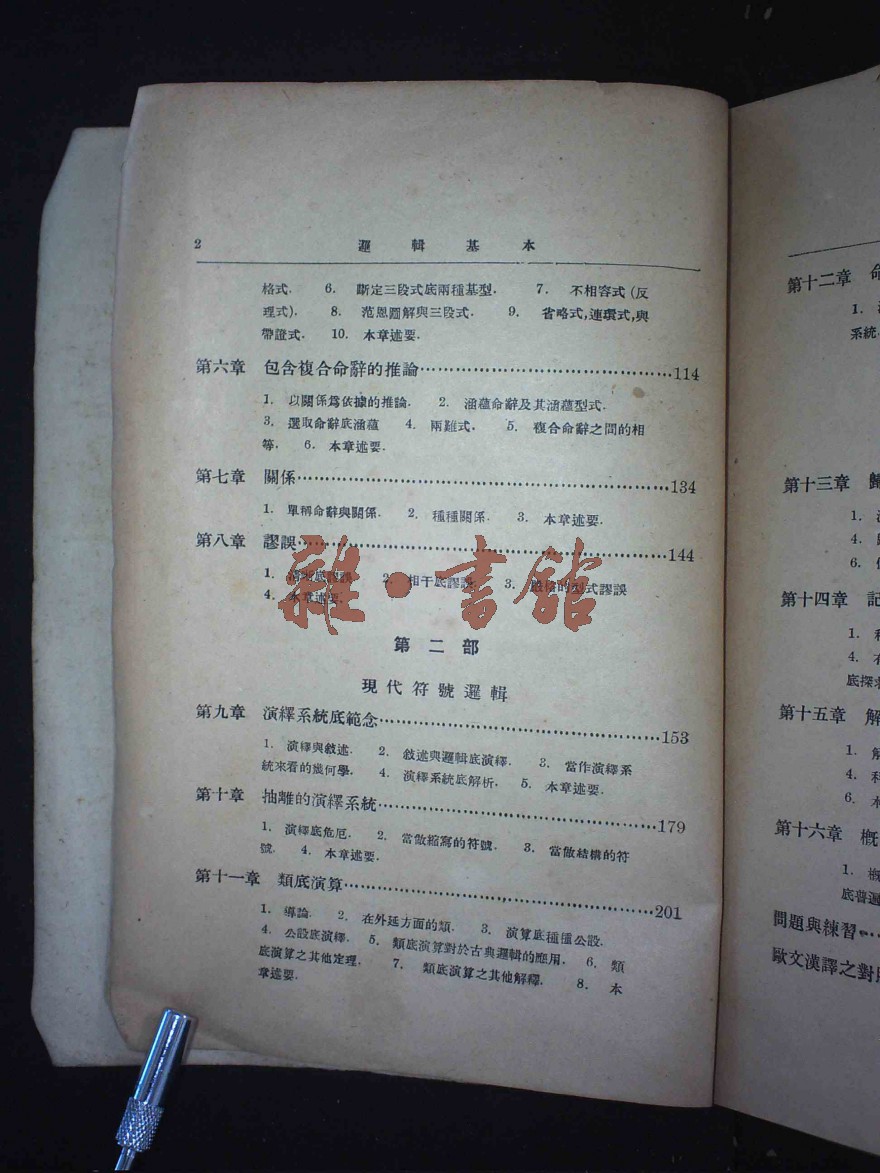 2 邏輯基本
格式. 6. 斷定三段式底兩種基型. 7. 不相容式(反
理式). 8. 范恩圖解與三段式. 9. 省略式,連環式,與
帶證式. 10. 本章述要.
第六章 包含複合命辭的推論……114
1. 以關係為依據的推論. 2. 涵蘊命辭及其涵蘊型式.
3. 選取命辭底涵蘊 4. 兩難式. 5. 複合命辭之間的相
等. 6. 本章述要.
第七章 關係……134
1. 單稱命辭與關係. 2. 種種關係. 3. 本章述要.
第八章 謬誤……144
1. 底謬誤 2. 相干底謬誤 3. 嚴格的型式謬誤
4. 本章述要.
雜·書館
第二部
現代符號邏輯
第九章 演繹系統底範念……153
1. 演繹與敘述. 2. 敘述與邏輯底演繹. 3. 當作演繹系
統來看的幾何學. 4. 演繹系統底解析. 5. 本章述要.
第十章 抽離的演繹系統……179
1. 演繹底危厄. 2. 當做縮寫的符號. 3. 當做結構的符
號. 4. 本章述要.
第十一章 類底演算……201
1. 導論. 2. 在外延方面的類. 3. 演算底種種公設.
4. 公設底演繹. 5. 類底演算對於古典邏輯的應用. 6. 類
底演算之其他定理. 7. 類底演算之其他解釋. 8. 本
章述要.
第十二章 命
1.
系統.
第十三章 歸
1.
4.
6.
第十四章 記
1.
4.
底探求
第十五章 解
1. 解
4. 科
6. 本
第十六章 概
1. 概
底普遍
問題與練習……
歐文漢譯之對照